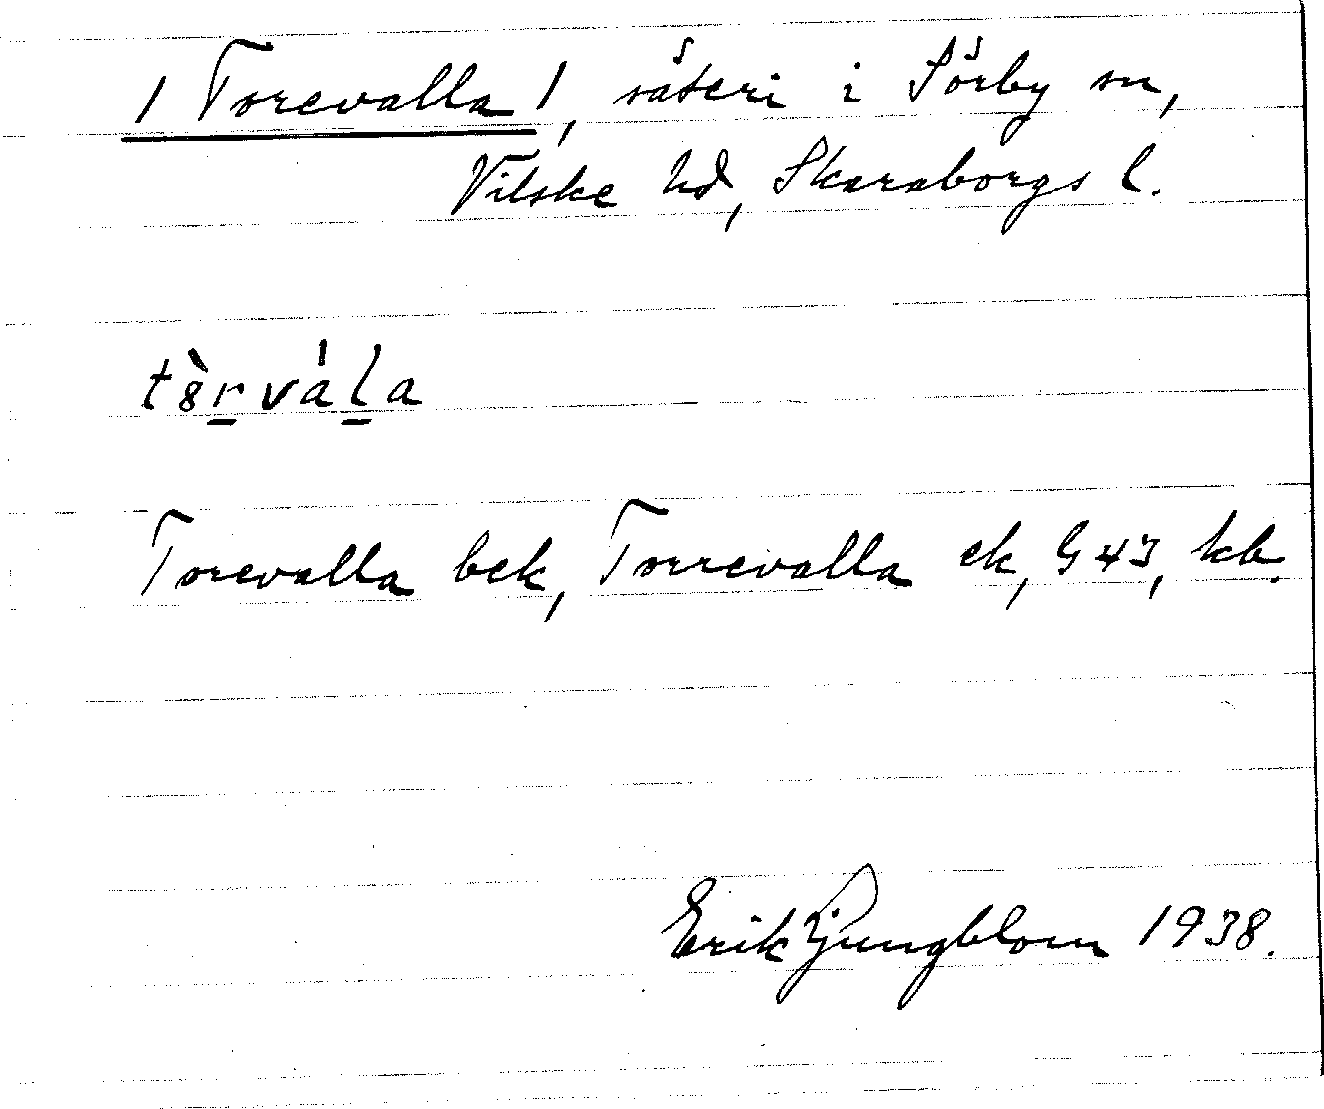 / Torevalla /, säteri i Sörby sn,
Vilske hd, Skaraborgs l.
tȣ̀rvála
Torevalla bek, Torrevalla ek, G 43, kb.
Erik Ljungblom 1938.